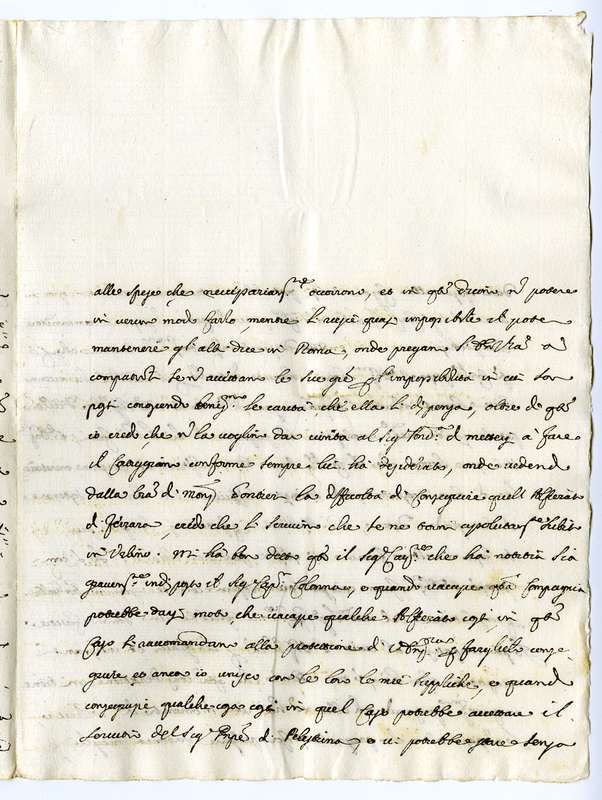 alle spese che necessariam.te occorrono, et in q.to dicono n' potere
in verun modo farlo, mentre li riesce quasi impossibile il poter
mantenere q.li alla dice in Roma, onde pregan
compatirli se n' accettano le sue gr.e l'impossibilità in cui son
posti conoscendo benig.mo la carità che ella li dispensa, oltre di q.to
io credo, che n' la voglin dar vinta al Sig.r d mettersi à fare
il conforme sempre lui hà desiderato, onde vedend
dalla l'ra di Mons. la difficoltà di conseguire quell Alfierato
di Ferrara, credo che li scrivino che se ne torni assolutam.te subito
in Urbino. Mi hà ben detto q.to il Sig. che hà notitia sia
gravem.te indisposto il Sig. Cap. Colonna, e quando vacasse q.ta Compagnia
potrebbe darsi moto, che vacasse qualche Alfierato così, in q.to
Caso si raccomandano alla protettione di farglielo conse-
guire, et anco io unisco con le loro le mie suppliche, e quand
conseguisse qualche cosa così in quel caso potrebbe accettare il
servitio del Sig. di Pelestrina, o vi potrebbe stare senza